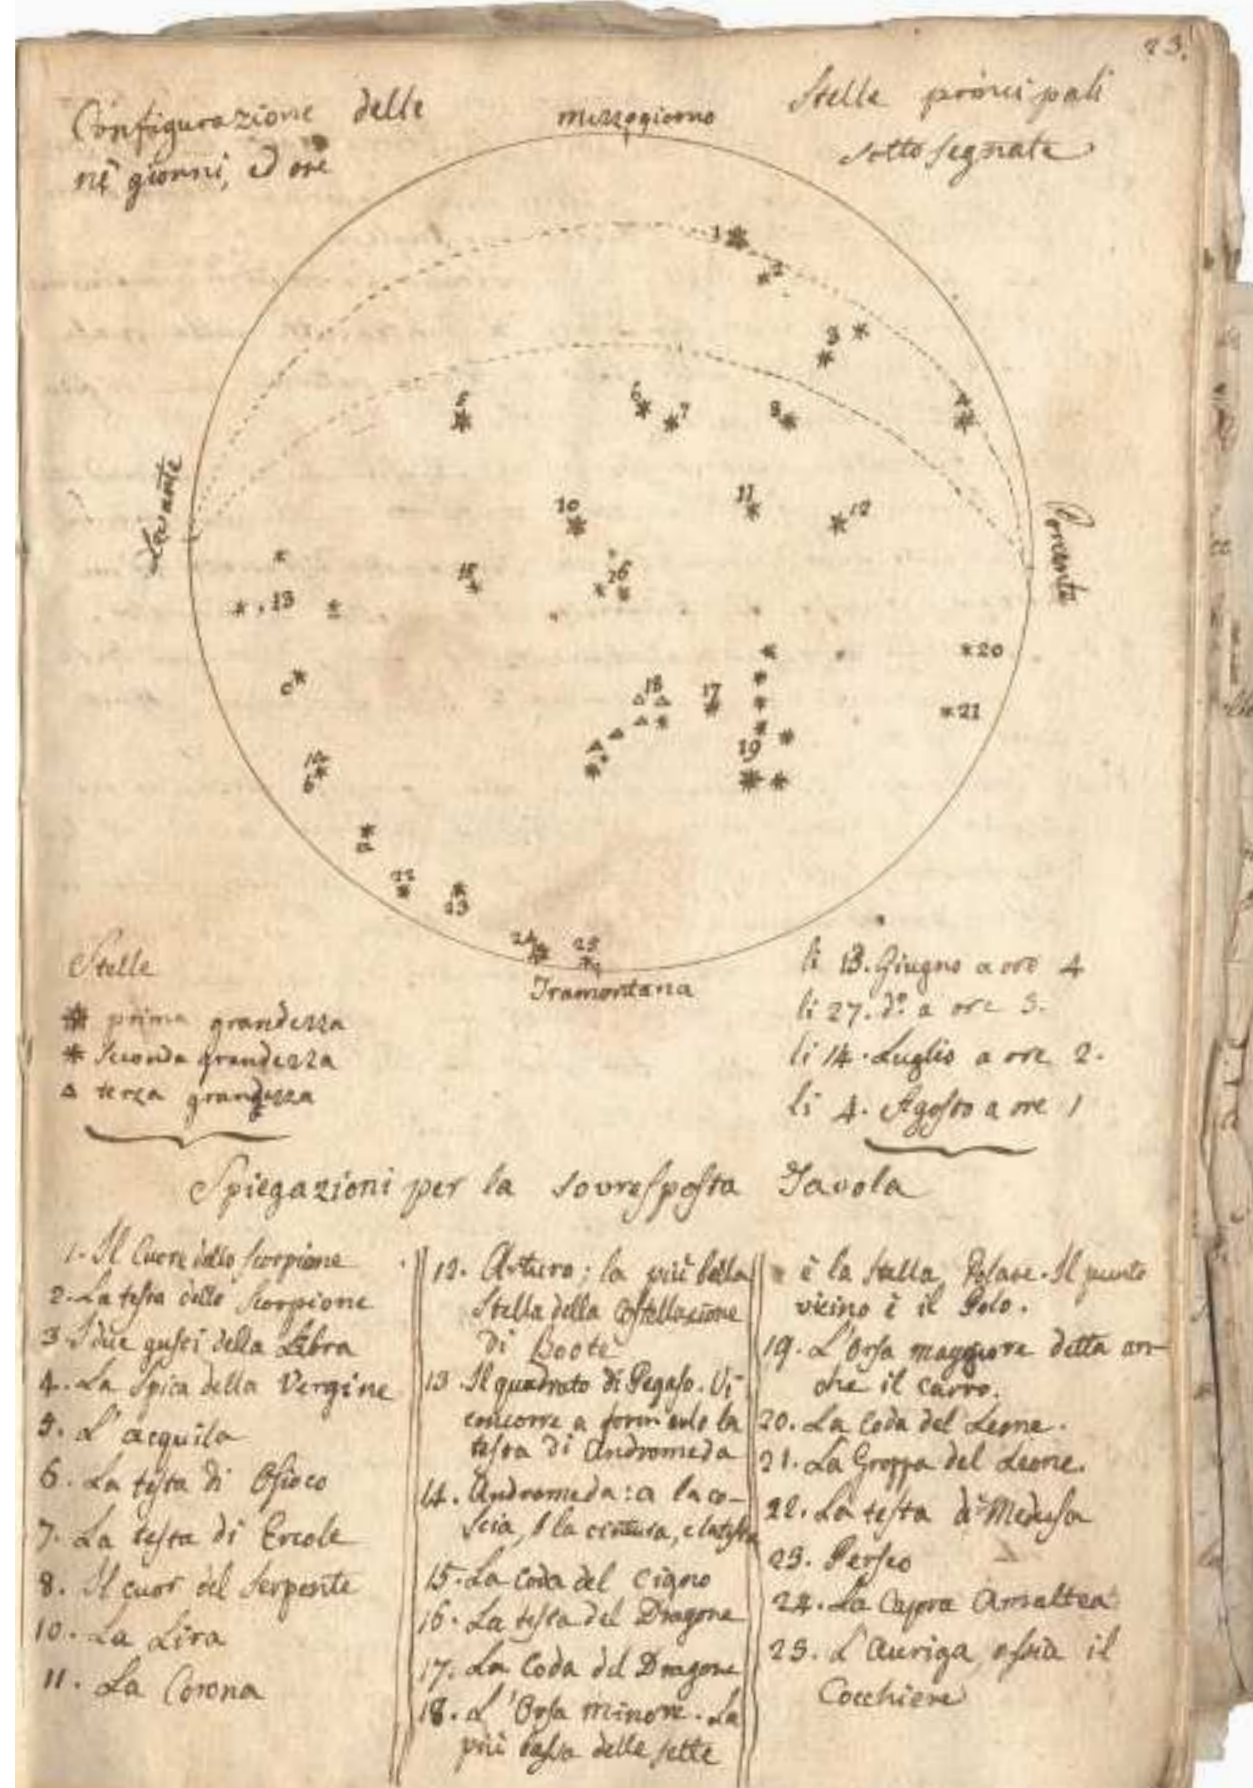 23.
Configurazione delle Stelle principali
ne giorni, ed ore sotto segnate
Mezzogiorno
1
2
3
4
5
6
7
8
10
11
12
Levante
Ponente
13
15
16
c
17
18
19
20
21
14
b
a
22
23
24
25
Tramontana
Stelle
prima grandezza
seconda grandezza
terza grandezza
li 13. Giugno a ore 4
li 27. do. a ore 3.
li 14. Luglio a ore 2.
li 4. Agosto a ore 1
Spiegazioni per la sovrasposta Tavola
1. Il Cuore dello Scorpione
2. La testa dello Scorpione
3. I due gusci della Libra
4. La Spica della Vergine
5. L'acquila
6. La testa di Ofioco
7. La testa di Ercole
8. Il cuor del Serpente
10. La Lira
11. La Corona
12. Arturo; la più bella
Stella della Costellazione
di Boote
13 Il quadrato di Pegaso. Vi
concorre a formarlo la
testa di Andromeda
14. Andromeda: a la co-
scia, b la cintura, c la testa
15. La Coda del Cigno
16. La testa del Dragone
17. La Coda del Dragone
18. L'Orsa minore. La
più bassa delle sette
è la Stella Polare. Il punto
vicino è il Polo.
19. L'Orsa maggiore detta an-
che il carro.
20. La Coda del Leone.
21. La Groppa del Leone.
22. La testa di Medusa
23. Perseo
24. La Capra Amaltea
25. L'Auriga, ossia il
Cocchiere